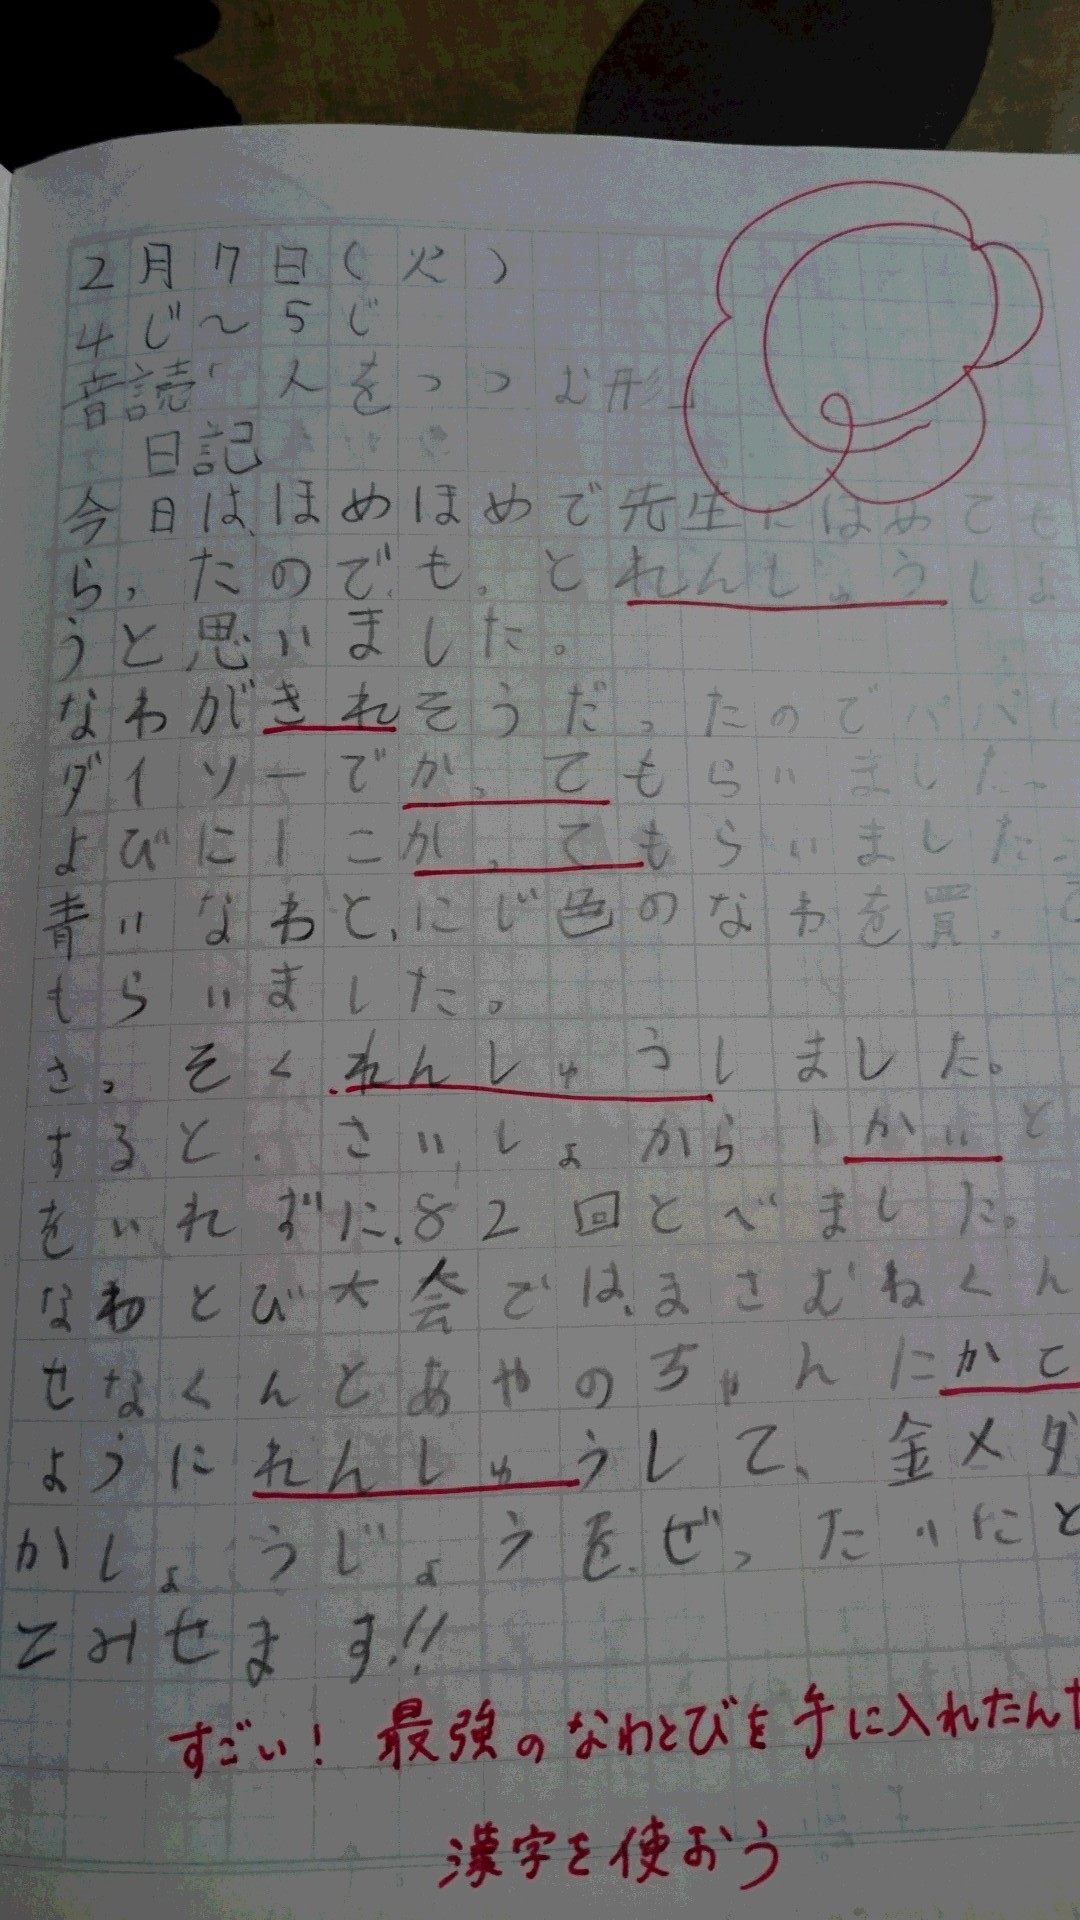 2月7日(火)
4じ〜5じ
音読「人をつつむ形」
日記
今日は、ほめほめで先生にほめても
らったのでもっとれんしゅうしよ
うと思いました。
なわがきれそうだったのでパパに
ダイソーでかってもらいました
よびに1こかってもらいました
青いなわと、にじ色のなわを買って
もらいました。
さっそくれんしゅうしました。
すると、さいしょから1かいと
をいれずに、82回とべました。
なわとび大会では、まさむねくん
せなくんとあやのちゃんにかて
ようにれんしゅうして、金メダ
かしょうじょうを、ぜったいにと
てみせます!!
すごい! 最強のなわとびを手に入れたんだ
漢字を使おう